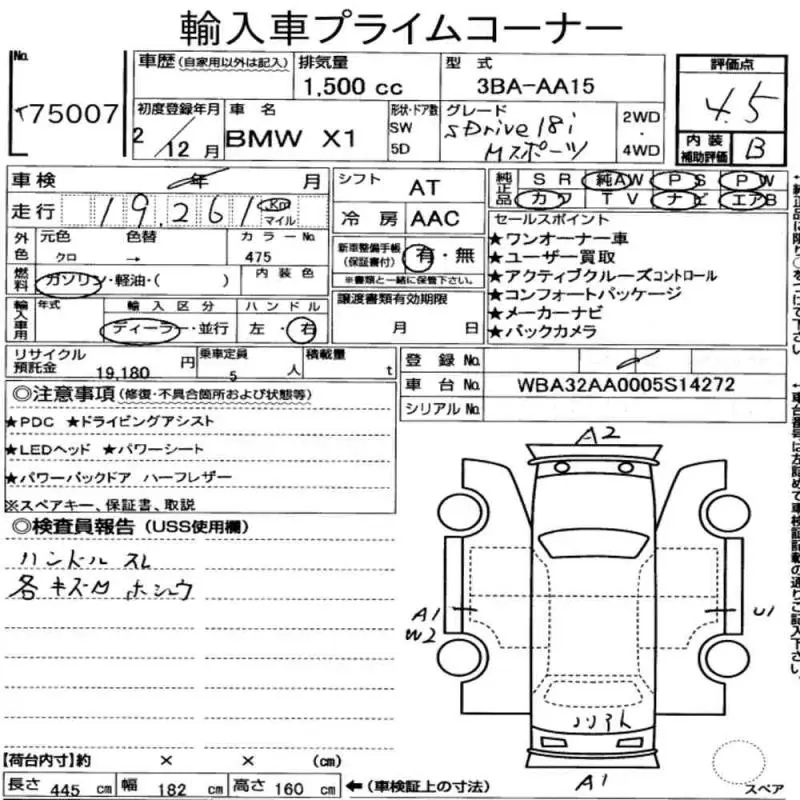 輸入車プライムコーナー
No.
75007
車歴 (自家用以外は記入)
排気量
1,500 cc
型 式
3BA-AA15
評価点
4.5
初度登録年月
2/12月
車 名
BMW X1
形状・ドア数
SW
5D
グレード
sDrive18i
Mスポーツ
2WD
・
4WD
内 装
補助評価
B
車 検 年 月
走 行 19,261 Km
マイル
シフト AT
冷 房 AAC
純正品 SR 純AW PS PW
カワ TV ナビ エアB
外色
元色 色替 カラーNo.
クロ → 475
燃料
ガソリン・軽油・( )
内 装 色
新車整備手帳
(保証書付)
有・無
※書類と一緒に保管下さい。
セールスポイント
★ワンオーナー車
★ユーザー買取
★アクティブクルーズコントロール
★コンフォートパッケージ
★メーカーナビ
★バックカメラ
輸入車用
年式
輸 入 区 分
ディーラー・並行
ハ ン ド ル
左・右
譲渡書類有効期限
月 日
リサイクル
預託金
19,180 円
乗車定員
5 人
積載量
t
登 録 No.
車 台 No. WBA32AA0005S14272
シリアル No.
◎注意事項 (修復・不具合箇所および状態等)
★PDC ★ドライビングアシスト
★LEDヘッド ★パワーシート
★パワーバックドア ハーフレザー
※スペアキー、保証書、取説
◎検査員報告 (USS使用欄)
ハンドル スレ
各 キズ凹 ホシュウ
A2
A1
W2
U1
ノリアト
A1
スペア
【荷台内寸】約 × × (cm)
長さ 445 cm 幅 182 cm 高さ 160 cm ←(車検証上の寸法)